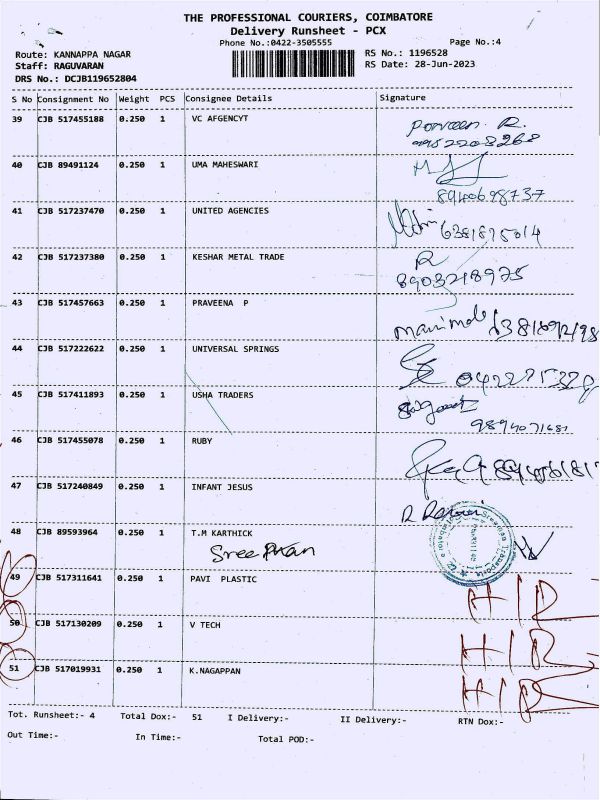 THE PROFESSIONAL COURIERS, COIMBATORE
Delivery Runsheet - PCX
Phone No.:0422-3505555 Page No.:4
Route: KANNAPPA NAGAR RS No.: 1196528
Staff: RAGUVARAN RS Date: 28-Jun-2023
DRS No.: DCJB119652804
S No Consignment No Weight PCS Consignee Details Signature
39 CJB 517455188 0.250 1 VC AFGENCYT
Porveen. R.
40 CJB 89491124 0.250 1 UMA MAHESWARI
8940698737
41 CJB 517237470 0.250 1 UNITED AGENCIES
6381875014
42 CJB 517237380 0.250 1 KESHAR METAL TRADE R
8903218975
43 CJB 517457663 0.250 1 PRAVEENA P
44 CJB 517222622 0.250 1 UNIVERSAL SPRINGS
45 CJB 517411893 0.250 1 USHA TRADERS
9894071681
46 CJB 517455078 0.250 1 RUBY
47 CJB 517240849 0.250 1 INFANT JESUS
48 CJB 89593964 0.250 1 T.M KARTHICK
49 CJB 517311641 0.250 1 PAVI PLASTIC H/R
50 CJB 517130209 0.250 1 V TECH H/R
51 CJB 517019931 0.250 1 K.NAGAPPAN H/R
Tot. Runsheet:- 4 Total Dox:- 51 I Delivery:- II Delivery:- RTN Dox:-
Out Time:- In Time:- Total POD:-